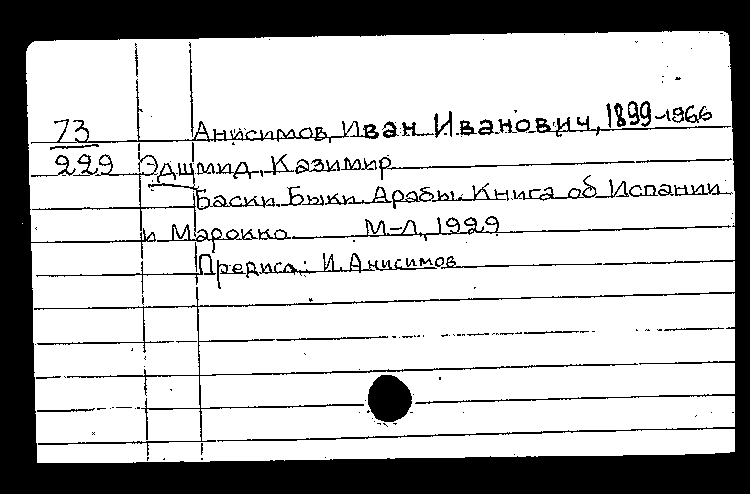 73 Анисимов, Иван Иванович, 1899-1966
229 Эдшмид, Казимир
Баски. Быки. Арабы. Книга об Испании
и Марокко. М-Л, 1929
Предисл.: И. Анисимов